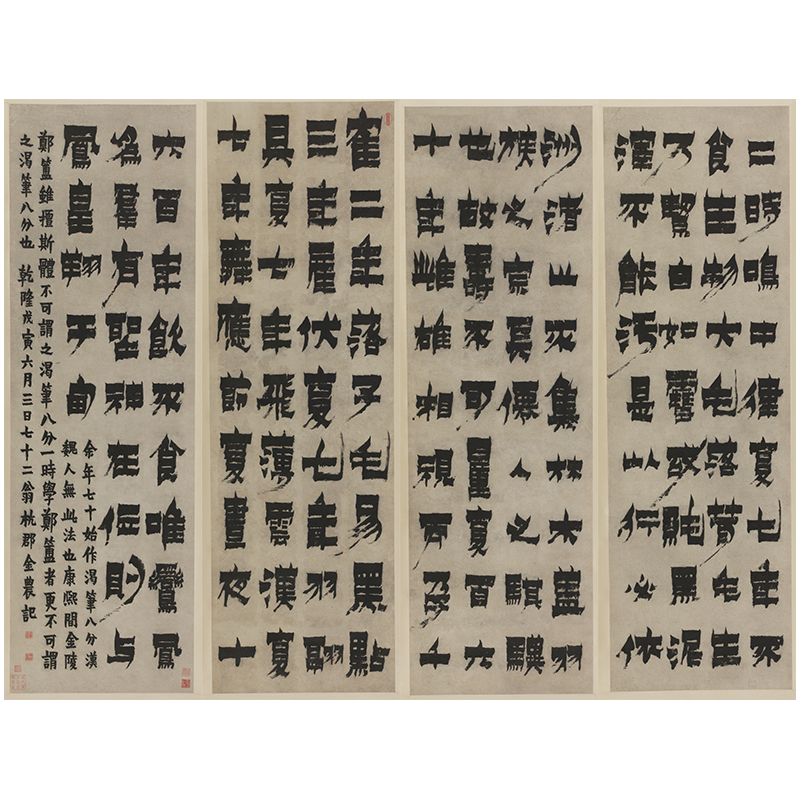 寉二年落子毛易黑點
三年雇伏夏七年羽翮
具夏七年飛薄雲漢夏
七年舞應節夏晝夜十
二時鳴中律夏七年不
食生物大毛落茸毛生
乃絜白如雪故黑泥
滓不能污是以行必依
洲渚止不集林木盖羽
族之宗長僊人之騏驥
也故壽不可量夏百六
十年雌雄相視而孕千
六百年飲不食唯鸞鳳
為羣有聖神在位則与
鳳皇翔于甸
余年七十始作渴筆八分漢
魏人無此法也康熙間金陵
鄭簠雖擅斯體不可謂之渴筆八分一時學鄭簠者更不可謂
之渴筆八分也 乾隆戊寅六月三日七十二翁杭郡金農記